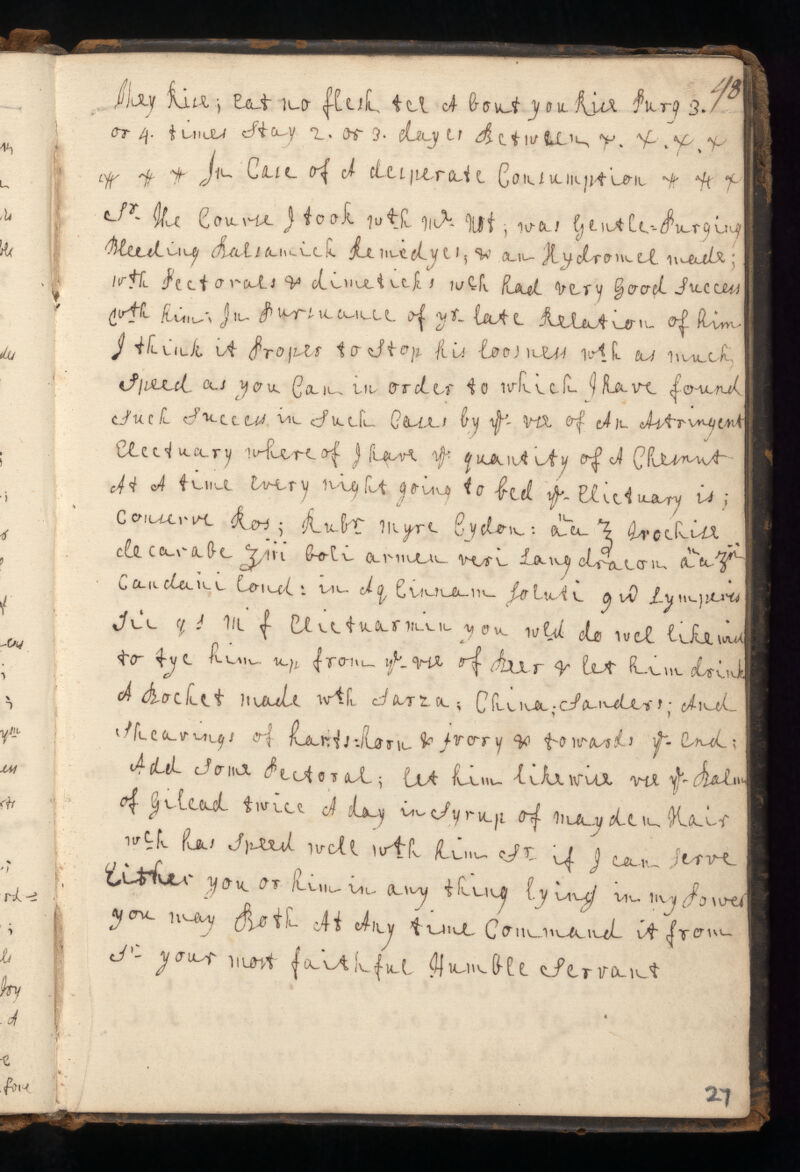 48
They Rise; eat no flesh tel A bout you Rise Purg 3.
or 4. times Stay 2. or 3. dayes Between
In Case of A desperate Consumption
Sr. The Course I took wth Mr. ; was Gentle=Purging
Bleeding Balsamick Remedyes, & an Hydromel made;
wth Pectorals & dimeticks wch had very Good Success
wth him; In Pursuance of yr. late Relation of him
I think it Proper to Stop his loosness wth as much
Speed as you Can in order to which I have found
Such Success in Such Cases by ye- vse of An Astringent
Electuary whereof I have ye quantity of A Chesnut
At A time Every night going to bed ye- Elictuary is;
Conserve Ros; Rubr myre Cydon: ana ℥ trochise
de carabe ʒiii boli armen veri Sang dracon ana
Laudani Lond: in Aq Cinnam soluti
q s M f Elictuarmin you wld do wel likewise
to tye him up from ye- vse of Beer & let him drink
A Bochet made wth Sarza; China; Sanders; And
Sheavings of harts:horn & Ivory & towards ye- End;
Add Some Pectoral; let him likewise vse ye- Balm
of Gilead twice A day in Syrup of mayden Hair
wch has Speed well wth him Sr. if I can serve
Either you or him in any thing lying in my Power
you may Both At Any time Command it from
Sr- your most faithful Humble Servant
27